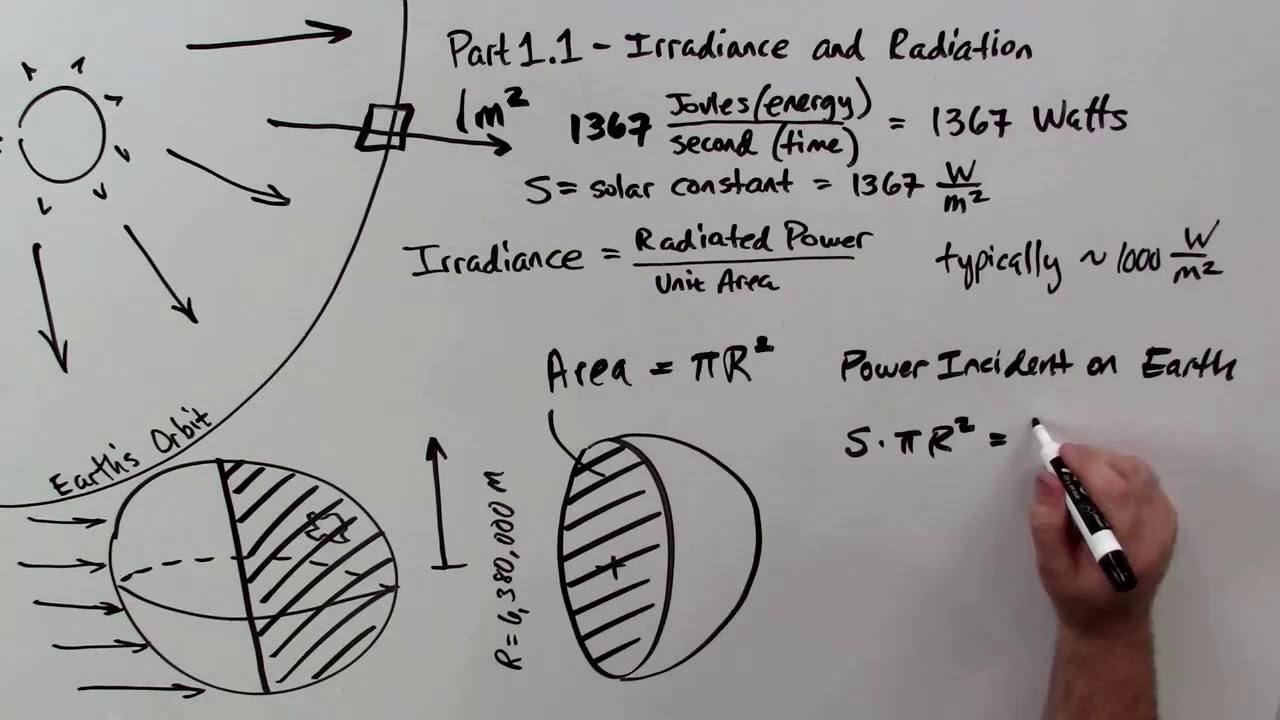 Part 1.1 - Irradiance and Radiation
1m²
1367 Joules (energy) / second (time) = 1367 Watts
S = solar constant = 1367 W/m²
Irradiance = Radiated Power / Unit Area
typically ~ 1000 W/m²
Area = πR²
Power Incident on Earth
S · πR² =
Earth's Orbit
R = 6,380,000 m